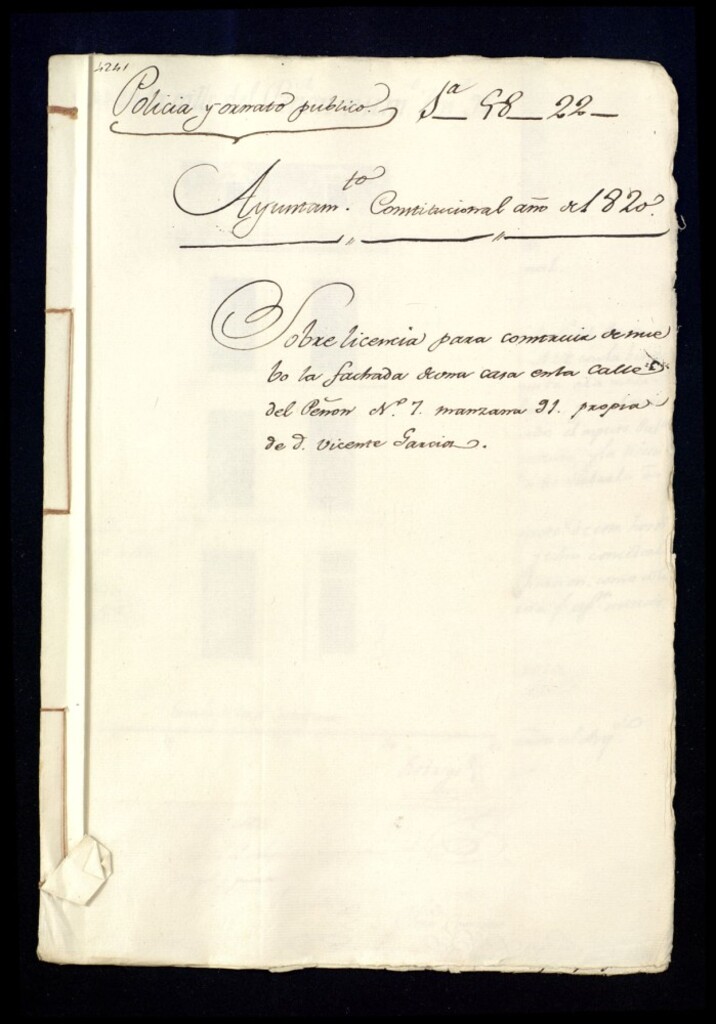 4241
Policia y ornato publico. 1ª 58 22
Ayuntam.to Constitucional año de 1820.
Sobre licencia para construir de nue
bo la fachada de una casa en la Calle
del Peñon N.º 7. manzana 91. propia
de d. Vicente Garcia.